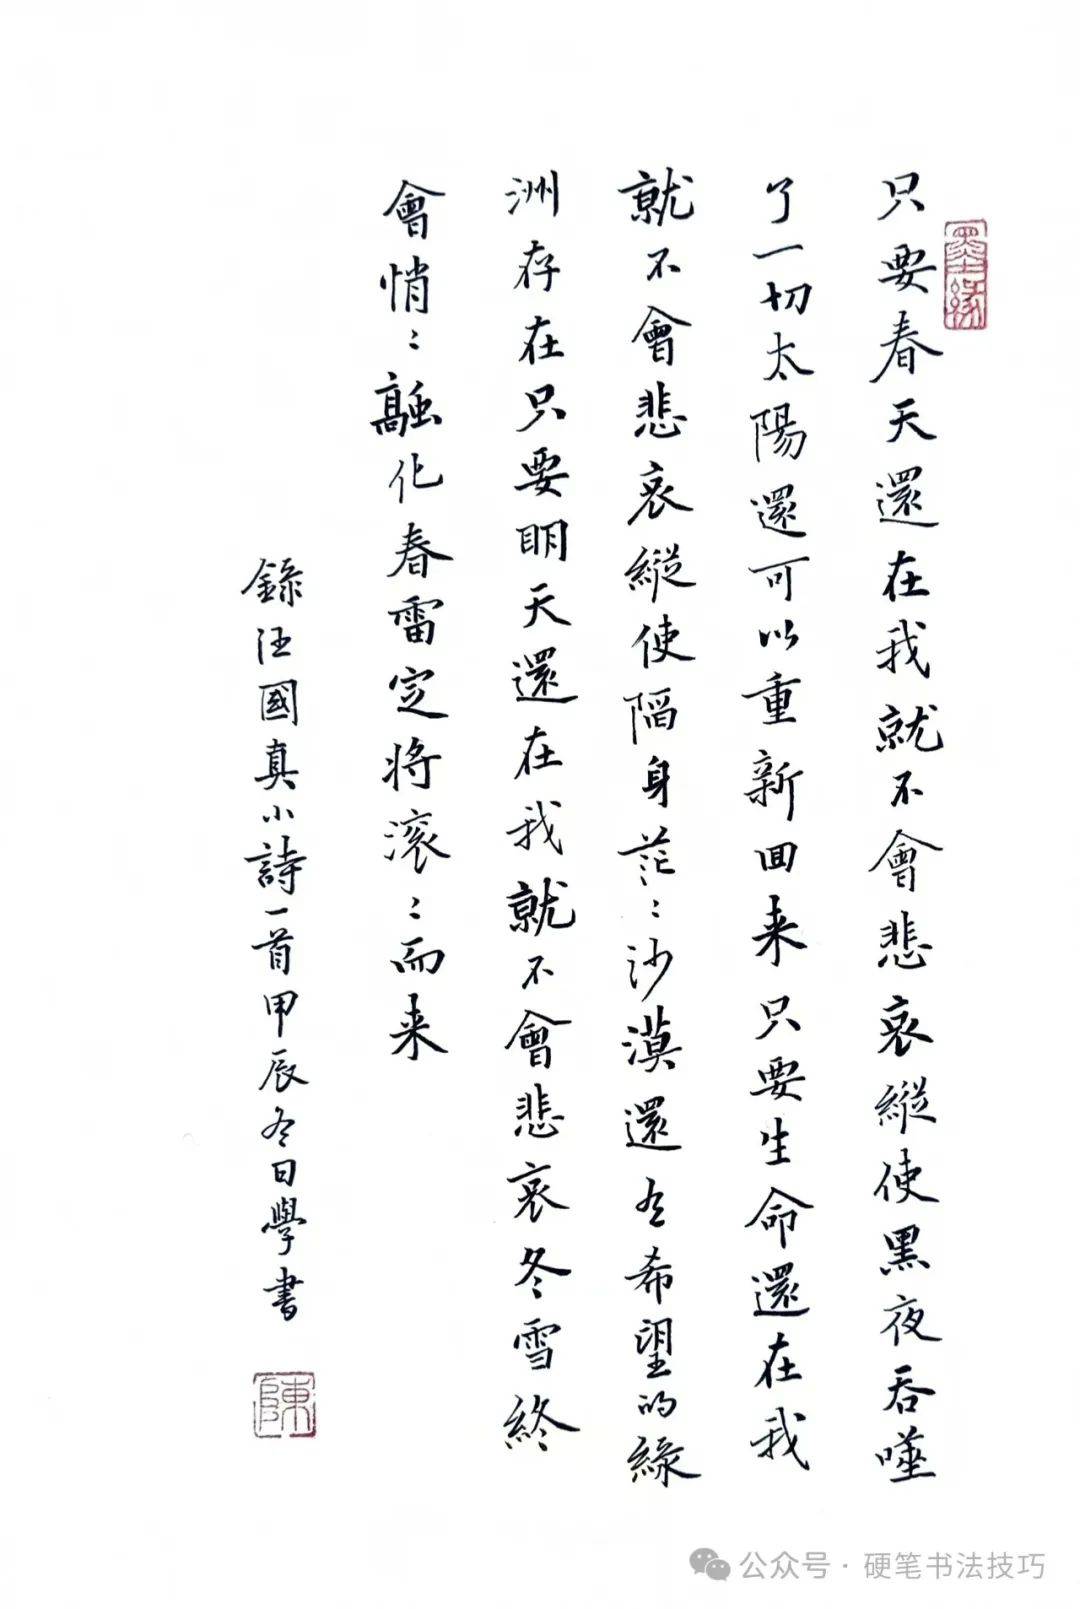 只要春天還在我就不會悲哀縱使黑夜吞噬
了一切太陽還可以重新回来只要生命還在我
就不會悲哀縱使陷身茫〻沙漠還有希望的綠
洲存在只要明天還在我就不會悲哀冬雪終
會悄〻融化春雷定将滚〻而来
錄汪國真小詩一首甲辰冬日學書
墨緣
陳
公众号·硬笔书法技巧